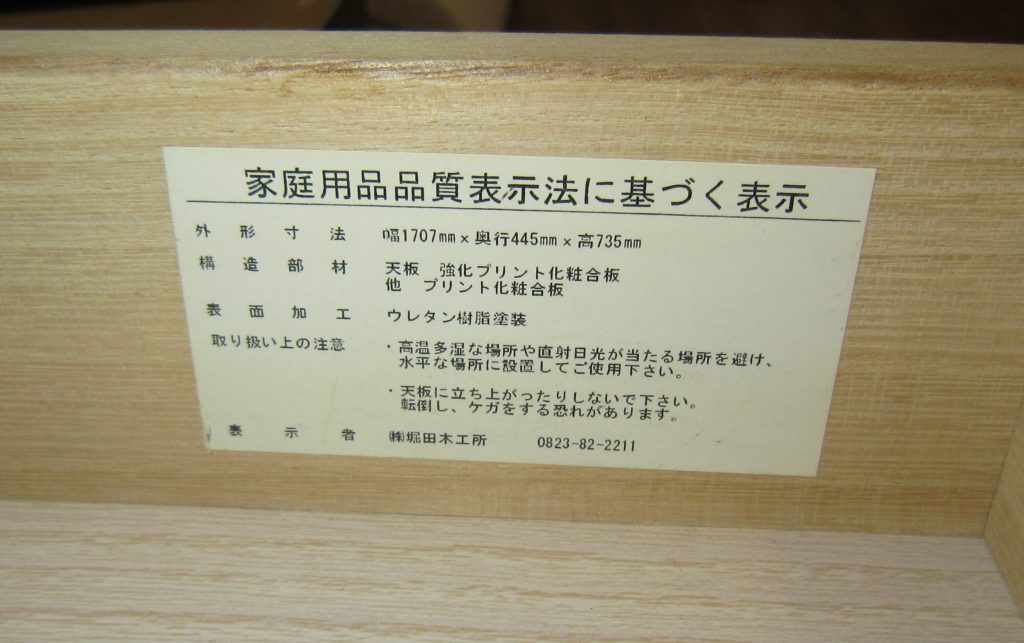 家庭用品品質表示法に基づく表示
外形寸法 幅1707㎜×奥行445㎜×高735㎜
構造部材 天板 強化プリント化粧合板
他 プリント化粧合板
表面加工 ウレタン樹脂塗装
取り扱い上の注意 ・高温多湿な場所や直射日光が当たる場所を避け、
水平な場所に設置してご使用下さい。
・天板に立ち上がったりしないで下さい。
転倒し、ケガをする恐れがあります。
表示者 ㈱堀田木工所 0823-82-2211